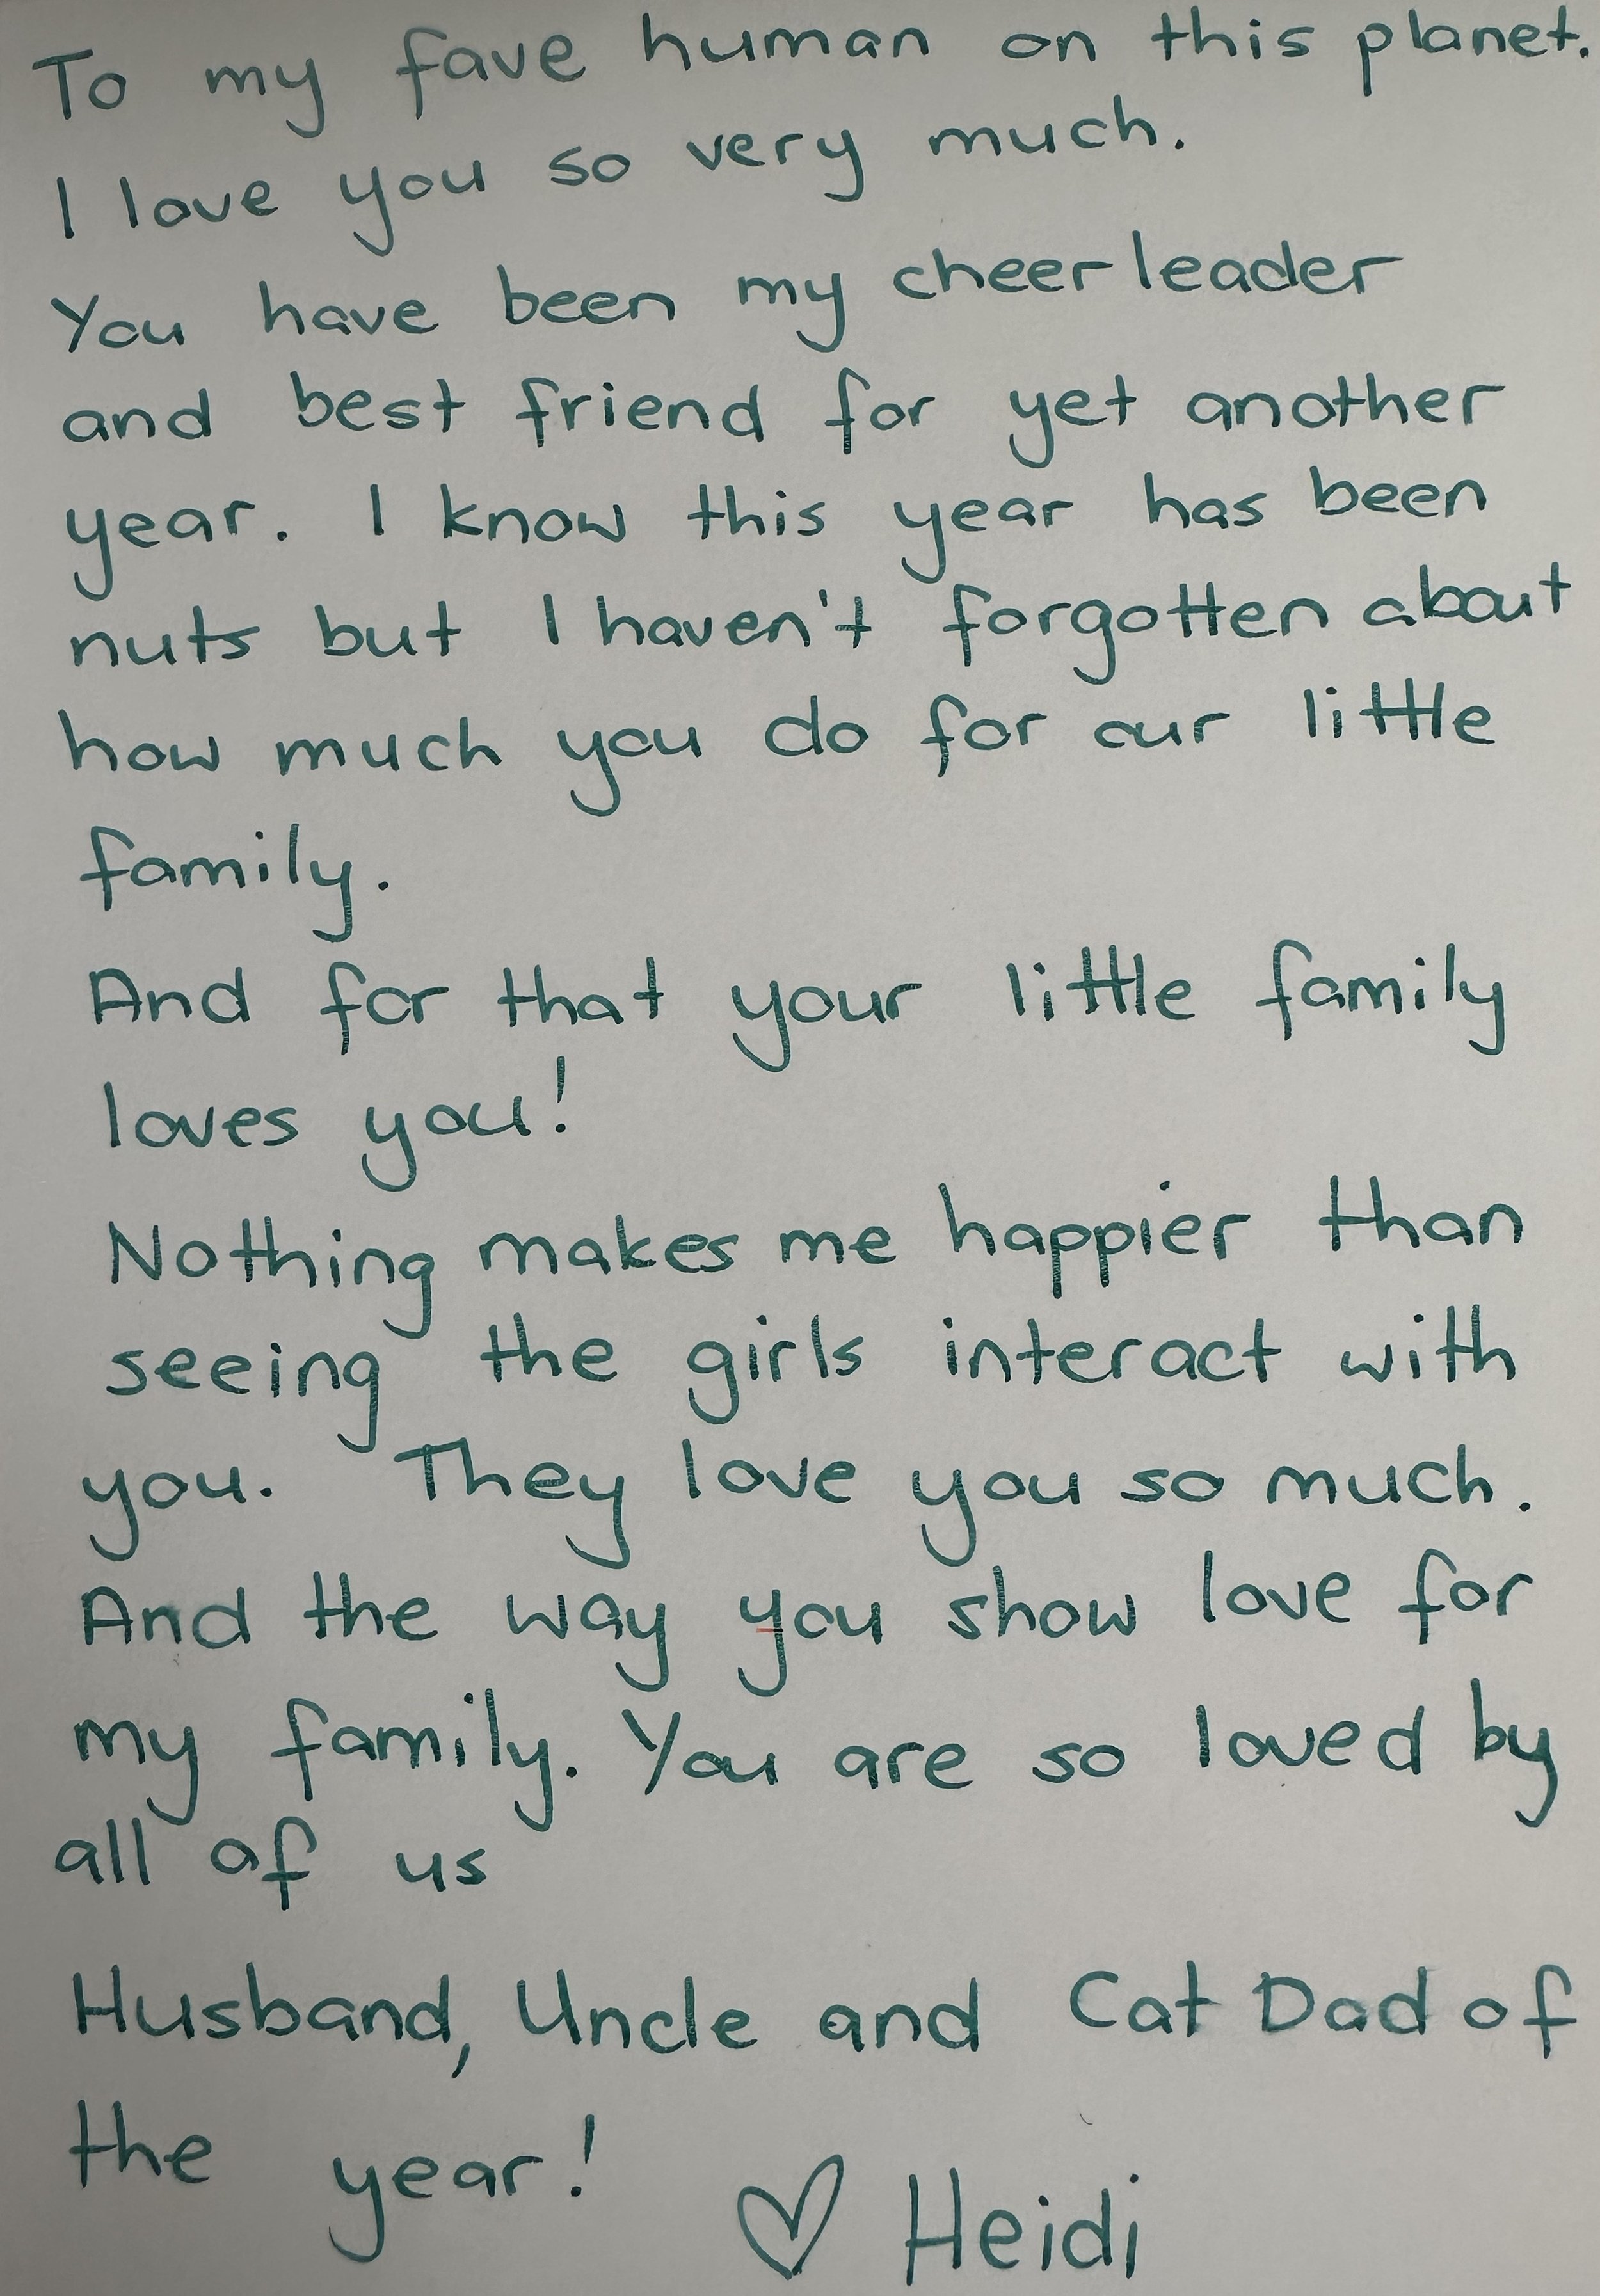 To my fave human on this planet.
I love you so very much.
You have been my cheerleader
and best friend for yet another
year. I know this year has been
nuts but I haven't forgotten about
how much you do for our little
family.
And for that your little family
loves you!
Nothing makes me happier than
seeing the girls interact with
you. They love you so much.
And the way you show love for
my family. You are so loved by
all of us
Husband, Uncle and Cat Dad of
the year! ♡ Heidi